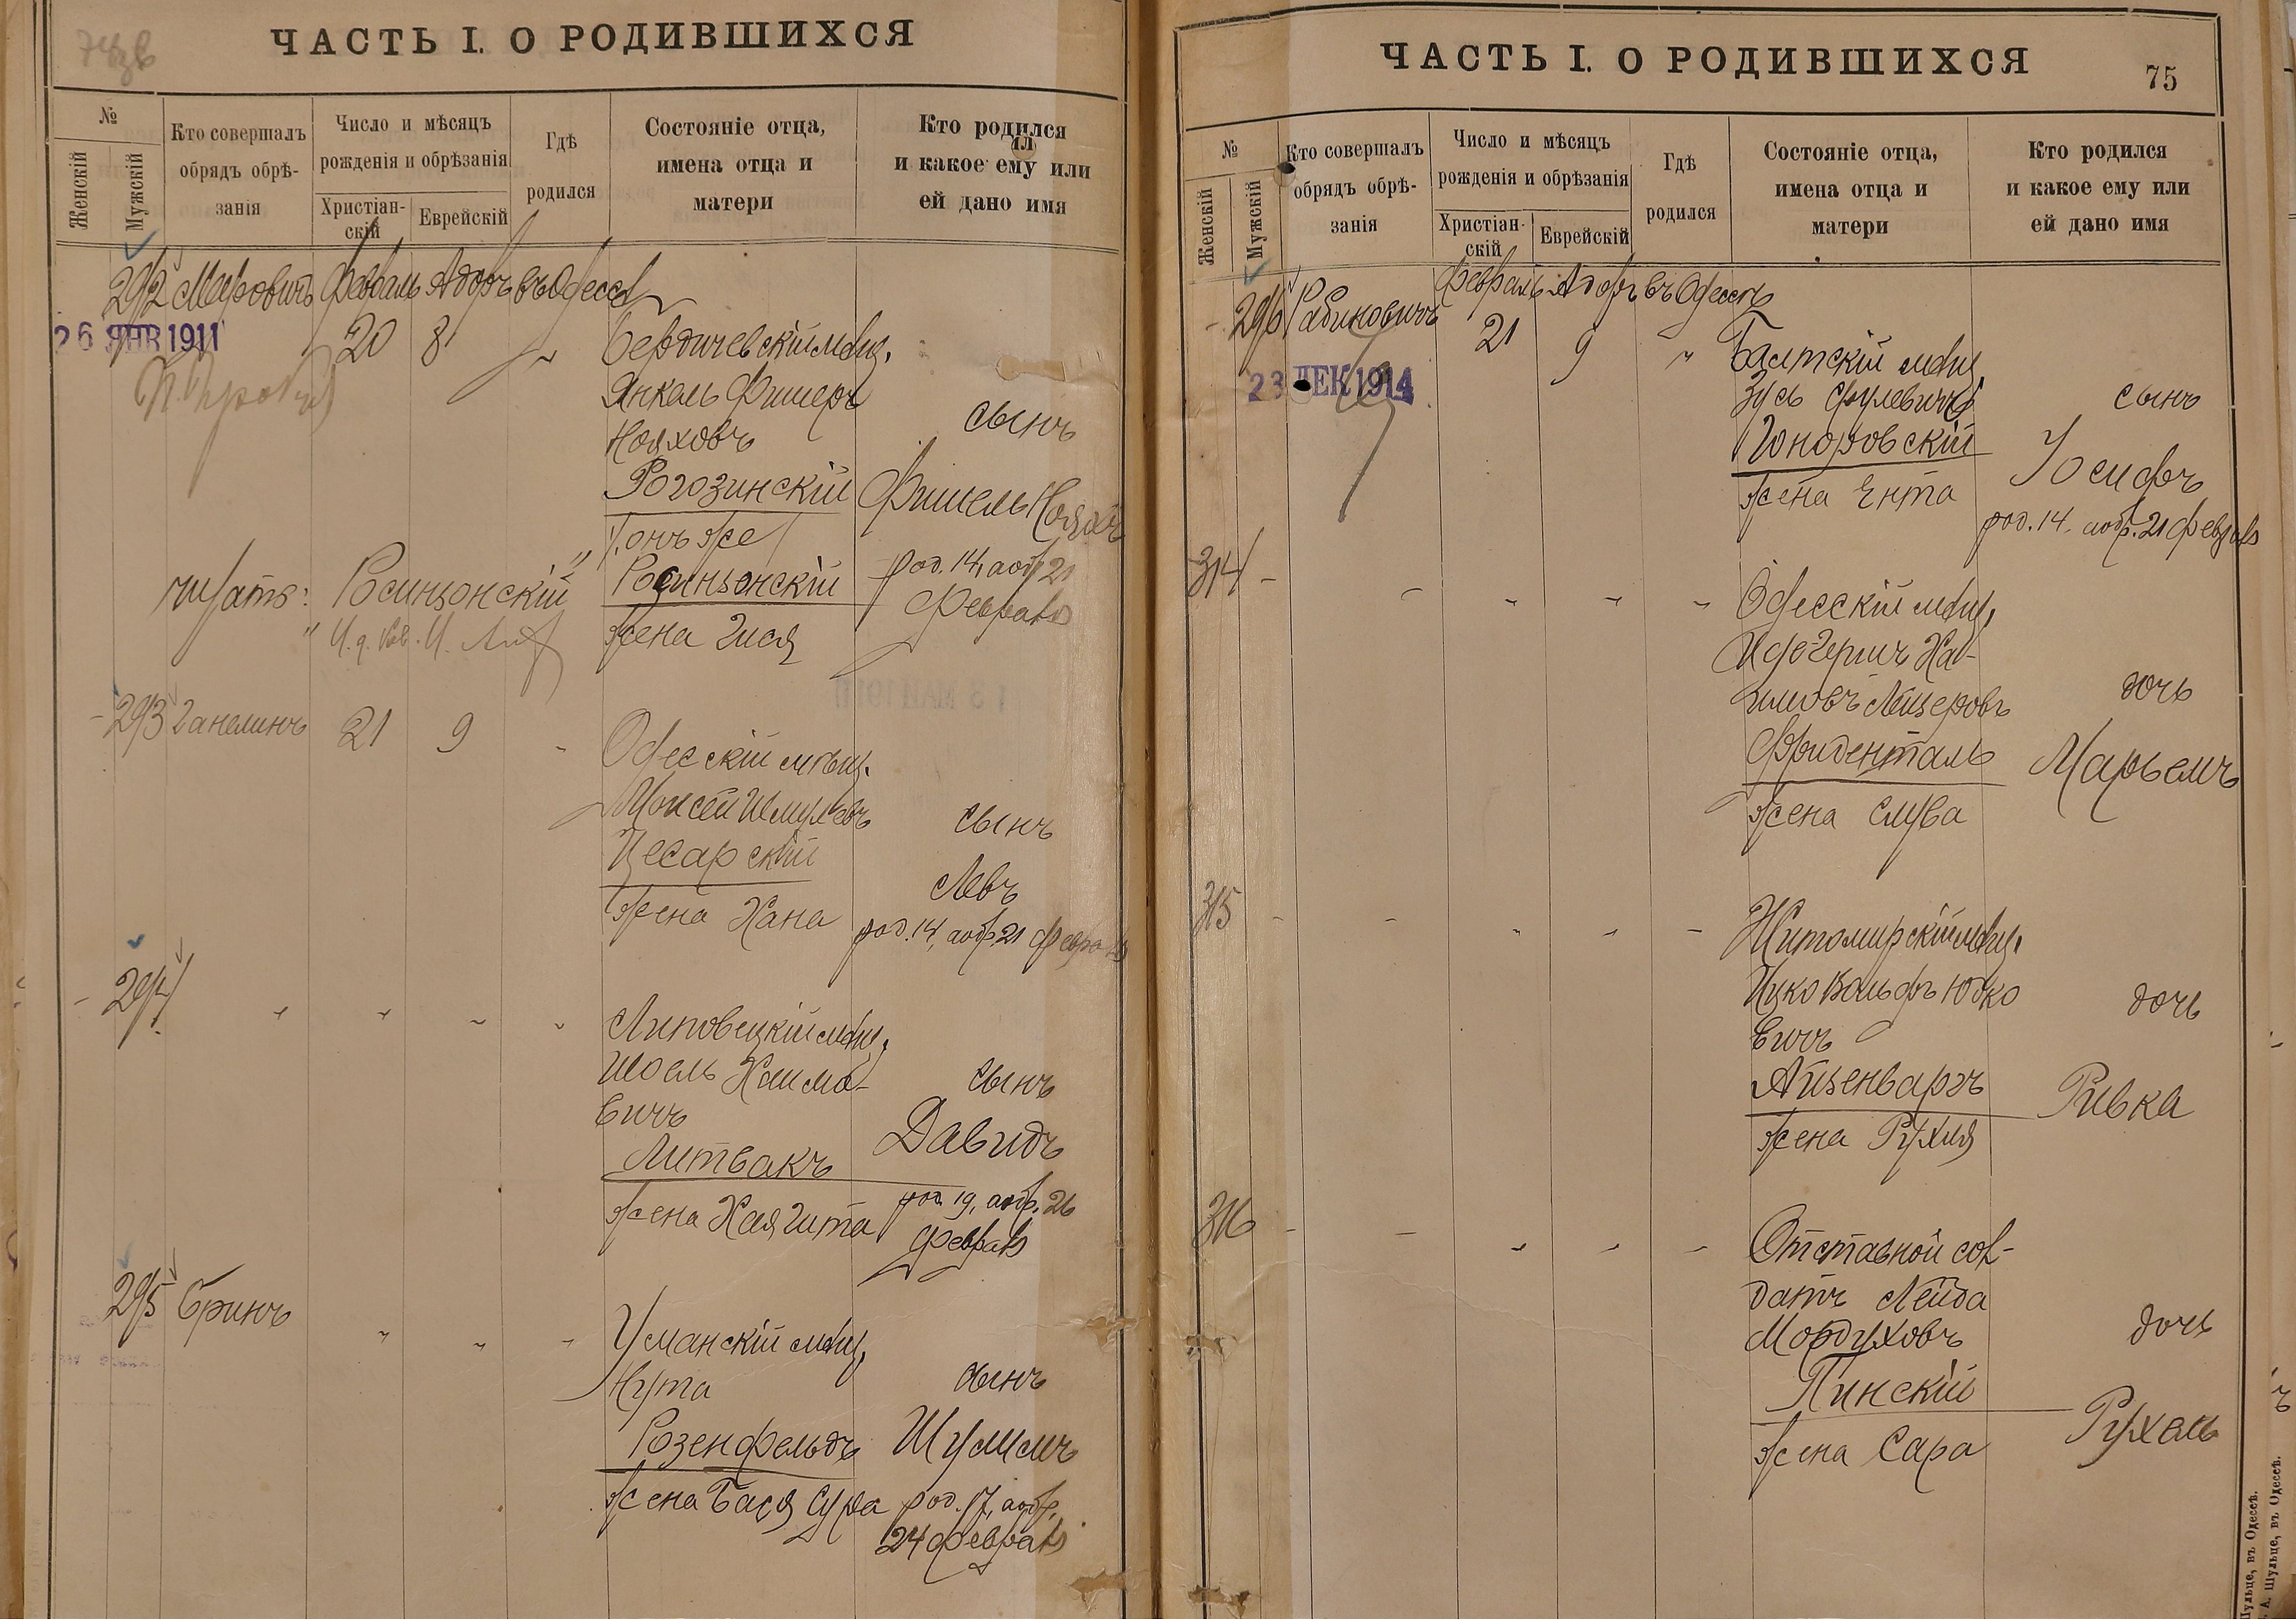 ЧАСТЬ I. О РОДИВШИХСЯ
№
Женскій
Мужскій
Кто совершалъ
обрядъ обрѣ-
занія
Число и мѣсяцъ
рожденія и обрѣзанія
Христіан-
скій
Еврейскій
Гдѣ
родился
Состояніе отца,
имена отца и
матери
Кто родился
и какое ему или
ей дано имя
292 Февраль Адаръ въ Одессѣ
26 ЯНВ 1911
20 8
Бердичевскій мѣщ.
Янкель Фишеръ
Нояховъ
Рогозинскій
онъ же
Росиньонскій
жена Гися
сынъ
Фишель Нояхъ
род. 14, аобр. 21
Февраля
читать: "Росиньонскій"
293 Ганелинъ 21 9
Одесскій мѣщ.
Моисей Шмулевъ
Цесарскій
жена Хана
сынъ
Левъ
род. 14, аобр. 21 Февраля
294
Липовецкій мѣщ.
Шоель Хаимо-
вичъ
Литвакъ
жена Хая Гита
сынъ
Давидъ
род. 19, аобр. 26
Февраля
295 Бринъ
Уманскій мѣщ.
Нута
Розенфельдъ
жена Бася Сура
сынъ
Шулимъ
род. 17, аобр.
24 Февраля
ЧАСТЬ I. О РОДИВШИХСЯ
75
№
Женскій
Мужскій
Кто совершалъ
обрядъ обрѣ-
занія
Число и мѣсяцъ
рожденія и обрѣзанія
Христіан-
скій
Еврейскій
Гдѣ
родился
Состояніе отца,
имена отца и
матери
Кто родился
и какое ему или
ей дано имя
296 Рабиновичъ Февраль Адаръ въ Одессѣ
23 ДЕК 1914
21 9 "
Балтскій мѣщ.
Зусь Срулевичъ
Гоноровскій
жена Ента
сынъ
Іосифъ
род. 14, аобр. 21 Февраля
314
Одесскій мѣщ.
Ха-
имовъ Лейзеровъ
Фриденталь
жена Слува
дочь
Марьемъ
315
Житомирскій мѣщ.
Ицко Вольфъ Юдко
вичъ
Айзенваргъ
жена Рухля
дочь
Ривка
316
Отставной сол-
датъ Лейба
Мордуховъ
Пинскій
жена Сара
дочь
Рухель
Шульце, въ Одессѣ.
А. Шульце, въ Одессѣ.